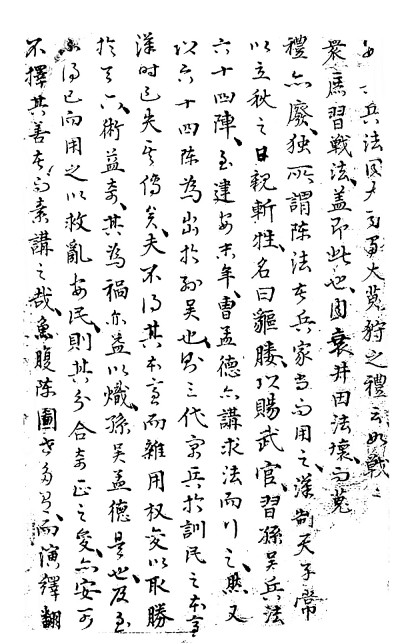 兵法因大蒐狩之禮云如戰
衆庶習戰法蓋即此也周衰井田法壞而蒐
禮亦廢独所謂陳法者兵家当而用之漢制天子常
以立秋之日親斬牲名曰貙膢以賜武官習孫吳兵法
六十四陣至建安末年曹孟徳亦講求法而行之然又
以六十四陈為出於孫吳也則三代寓兵於訓民之本意
漢时已失其傳矣夫不得其本意而雜用权变以取勝
於天下術益奇其為禍亦益以熾孫吳孟徳是也及至
不得已而用之以救亂安民則其分合奇正之变亦安可
不擇其善者而素講之哉魚腹陈圖世多有而演繹翻